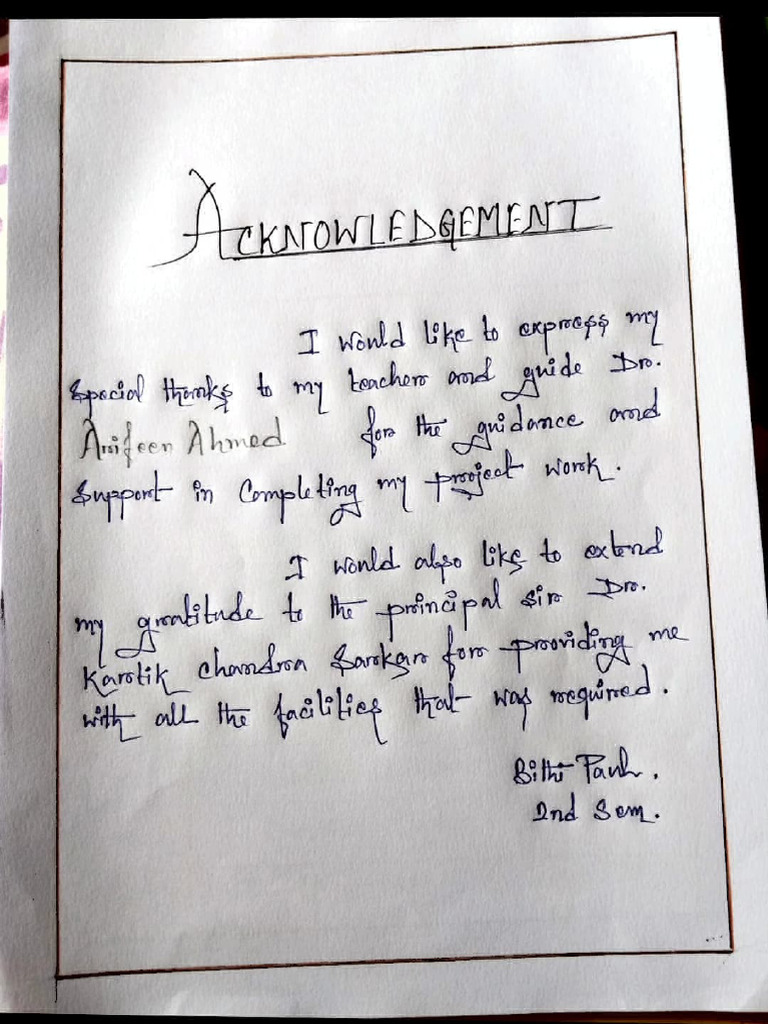 ACKNOWLEDGEMENT
I would like to express my
special thanks to my teacher and guide Dr.
Arifeen Ahmed for the guidance and
support in completing my project work.
I would also like to extend
my gratitude to the principal sir Dr.
Kartik Chandra Sarkar for providing me
with all the facilities that was required.
Bithi Paul.
2nd Sem.